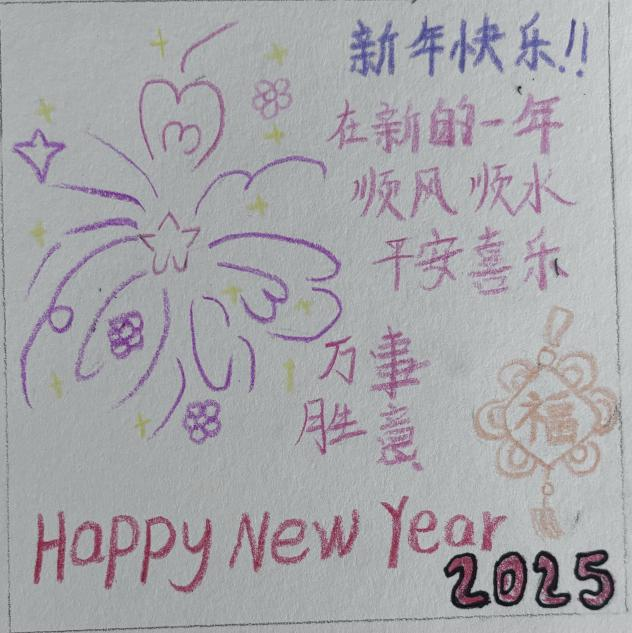 新年快乐!!
在新的一年
顺风顺水
平安喜乐
万事
胜意
福
Happy New Year
2025